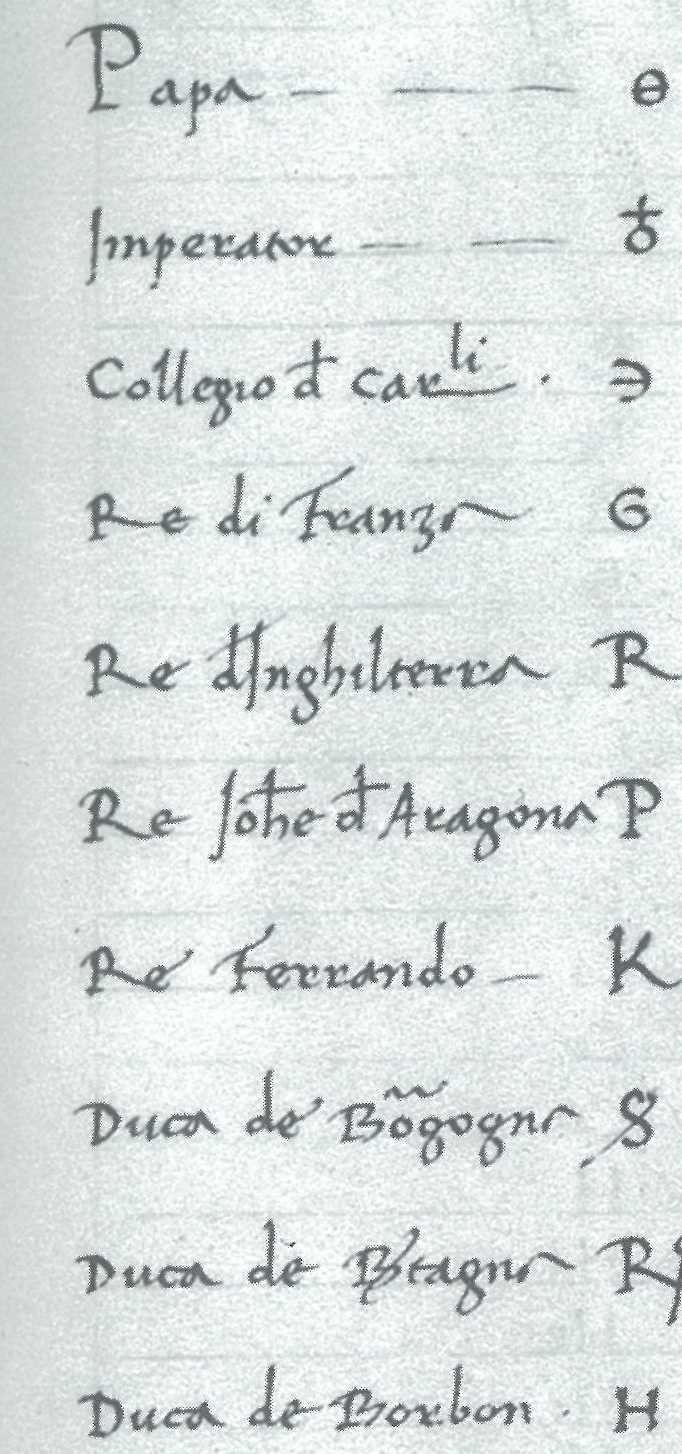 Papa — — — ɵ
Imperator — — ♁
Collegio đ Carli · Э
Re di Franza G
Re đInghilterra R
Re Joħe đ Aragona P
Re Ferrando — K
Duca de Bõgogna S
Duca de B'tagna R
Duca de Borbon · H